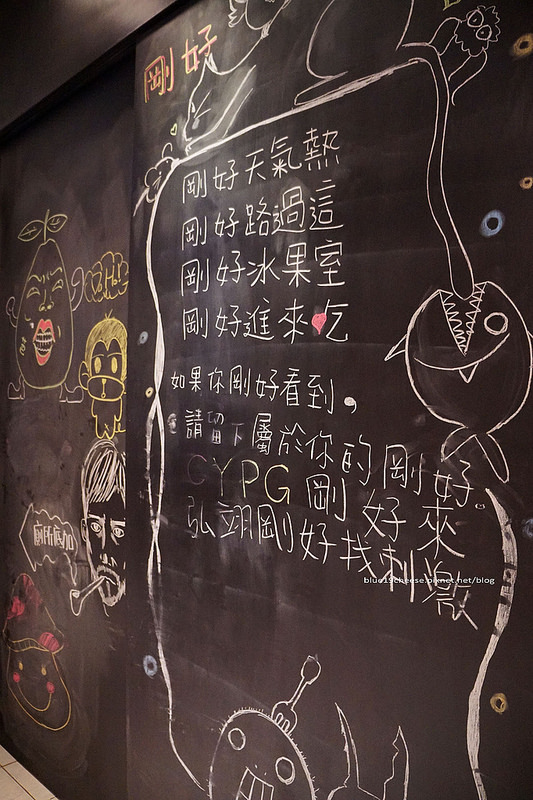 剛好
剛好天氣熱
剛好路過這
剛好冰果室
剛好進來吃
如果你剛好看到，
請留下屬於你的剛好
CYPG 剛好來
弘翊剛好找刺激
廁所底加
blue19cheese.pixnet.net/blog